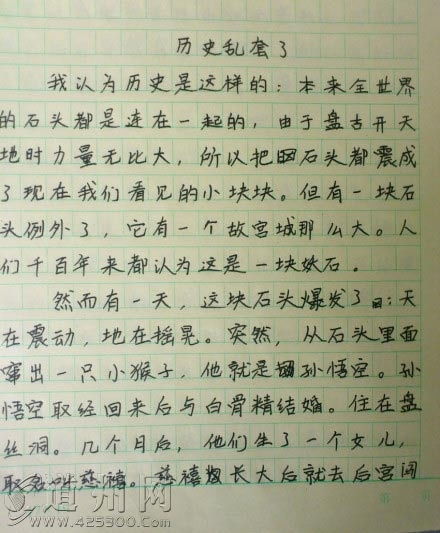 历史乱套了
我认为历史是这样的：本来全世界
的石头都是连在一起的，由于盘古开天
地时力量无比大，所以把石头都震成
了现在我们看见的小块块。但有一块石
头例外了，它有一个故宫城那么大。人
们千百年来都认为这是一块妖石。
然而有一天，这块石头爆发了：天
在震动，地在摇晃。突然，从石头里面
窜出一只小猴子，他就是孙悟空。孙
悟空取经回来后与白骨精结婚。住在盘
丝洞。几个月后，他们生了一个女儿，
取名叫慈禧。慈禧长大后就去后宫闯
道州网
www.425300.Com
第 页